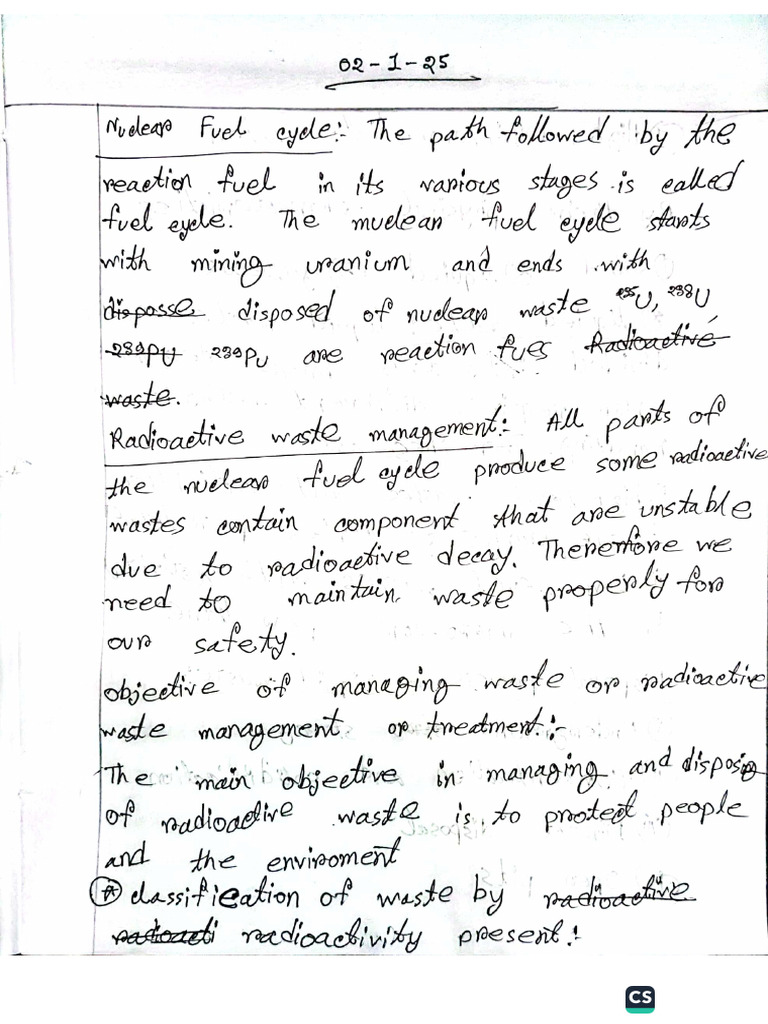 02-1-25
Nuclear Fuel cycle:- The path followed by the
reaction fuel in its various stages is called
fuel cycle. The nuclear fuel cycle starts
with mining uranium and ends with
disposse disposed of nuclear waste ²³⁵U, ²³⁸U,
239PU 239PU are reaction fues Radioactive
waste.
Radioactive waste management:- All parts of
the nuclear fuel cycle produce some radioactive
wastes contain component that are unstable
due to radioactive decay. Therefore we
need to maintain waste properly for
our safety.
objective of managing waste or radioactive
waste management or treatment:-
The main objective in managing and disposig
of radioactive waste is to protect people
and the enviroment
classification of waste by radioactive
radioacti radioactivity present:-
CS